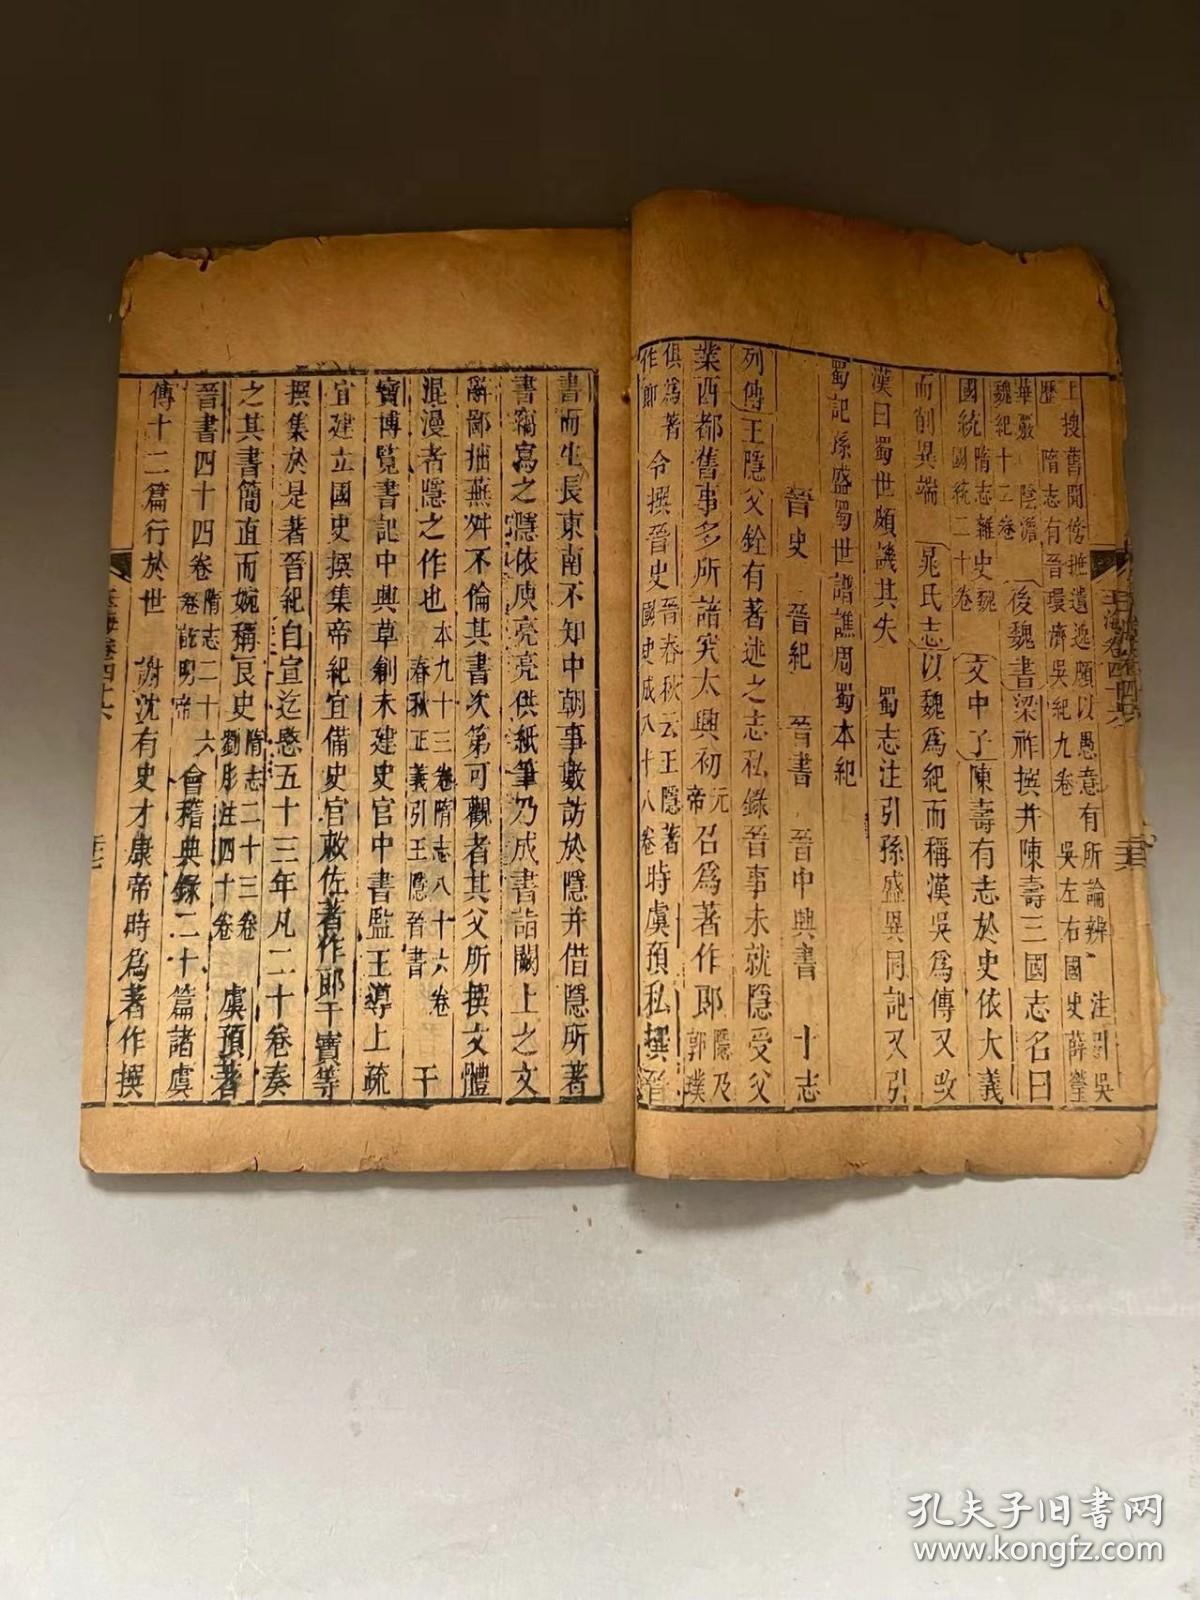 上搜舊聞傍摭遺逸頗以愚意有所論辨 注引吳
歷 隋志有晉環濟吳紀九卷 吳左右國史薛瑩
華覈 陰澹
魏紀十二卷 後魏書梁祚撰并陳壽三國志名曰
國統 隋志雜史魏
國統二十卷 文中子陳壽有志於史依大義
而削異端 晁氏志以魏爲紀而稱漢吳爲傳又改
漢曰蜀世頗譏其失 蜀志注引孫盛異同記又引
蜀記孫盛蜀世譜譙周蜀本紀
晉史 晉紀 晉書 晉中興書 十志
列傳王隱父銓有著述之志私錄晉事未就隱受父
業西都舊事多所諳究太興初 元
帝 召爲著作郎 隱乃
郭璞
俱爲著
作郎 令撰晉史 晉春秋云王隱著
國史成八十八卷 時虞預私撰晉
書而生長東南不知中朝事數訪於隱并借隱所著
書竊寫之隱依庾亮亮供紙筆乃成書詣闕上之文
辭鄙拙蕪舛不倫其書次第可觀者其父所撰文體
混漫者隱之作也 本九十三卷隋志八十六卷
春秋正義引王隱晉書 干
寶博覽書記中興草創未建史官中書監王導上疏
宜建立國史撰集帝紀宜備史官敕佐著作郎干寶等
撰集於是著晉紀自宣迄愍五十三年凡二十卷奏
之其書簡直而婉稱良史 隋志二十三卷
劉彤注四十卷 虞預著
晉書四十四卷 隋志二十六
卷訖明帝 會稽典錄二十篇諸虞
傳十二篇行於世 謝沈有史才康帝時爲著作撰
玉海卷四十六
玉海卷四十六
孔夫子旧书网
www.kongfz.com